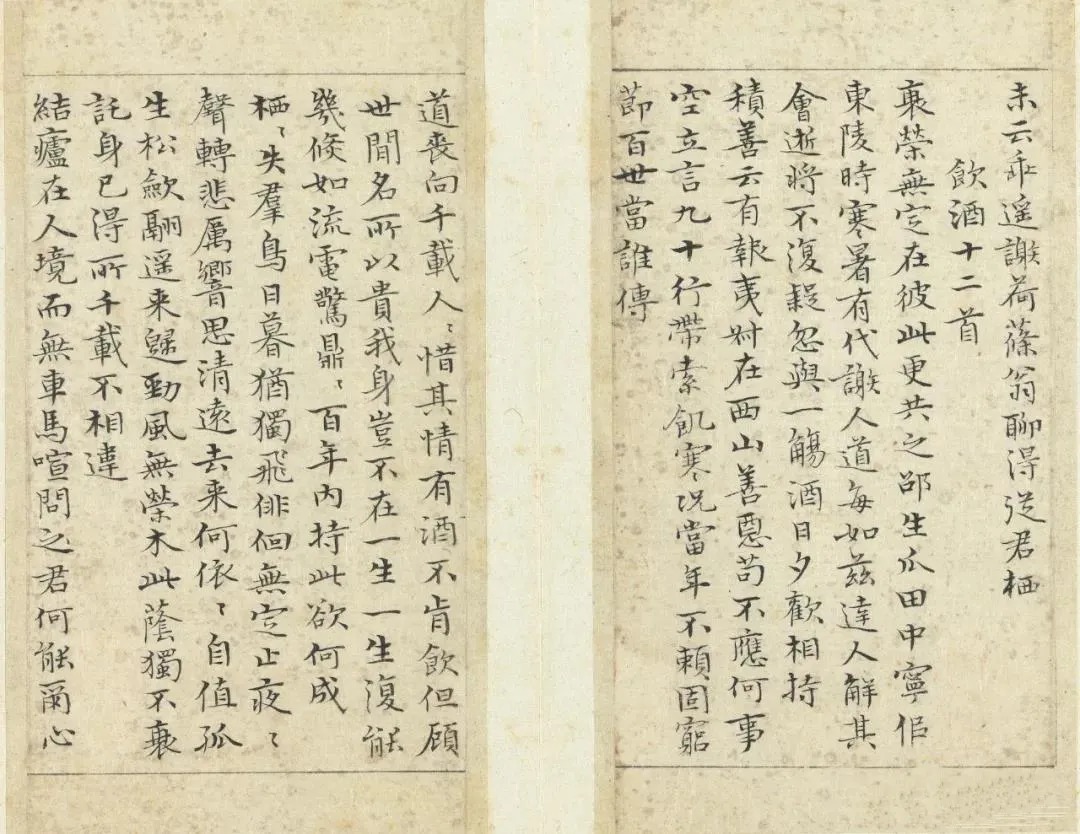 未云乖遥謝荷蓧翁聊得従君栖
飲酒十二首
衰榮無定在彼此更共之邵生瓜田中寧佀
東陵時寒暑有代謝人道每如茲達人解其
會逝將不復疑忽與一觴酒日夕歡相持
積善云有報夷叔在西山善惡苟不應何事
空立言九十行帶索飢寒況當年不賴固窮
節百世當誰傳
道喪向千載人〻惜其情有酒不肯飲但顧
世間名所以貴我身豈不在一生一生復能
幾倏如流電驚鼎〻百年內持此欲何成
栖〻失羣鳥日暮猶獨飛徘徊無定止夜〻
聲轉悲厲響思清遠去来何依〻自值孤
生松歛翮遥来歸勁風無榮木此蔭獨不衰
託身已得所千載不相違
結廬在人境而無車馬喧問之君何能爾心